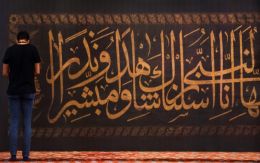 النبي إنا أرسلناك شاهدا ومبشرا ونذيرا